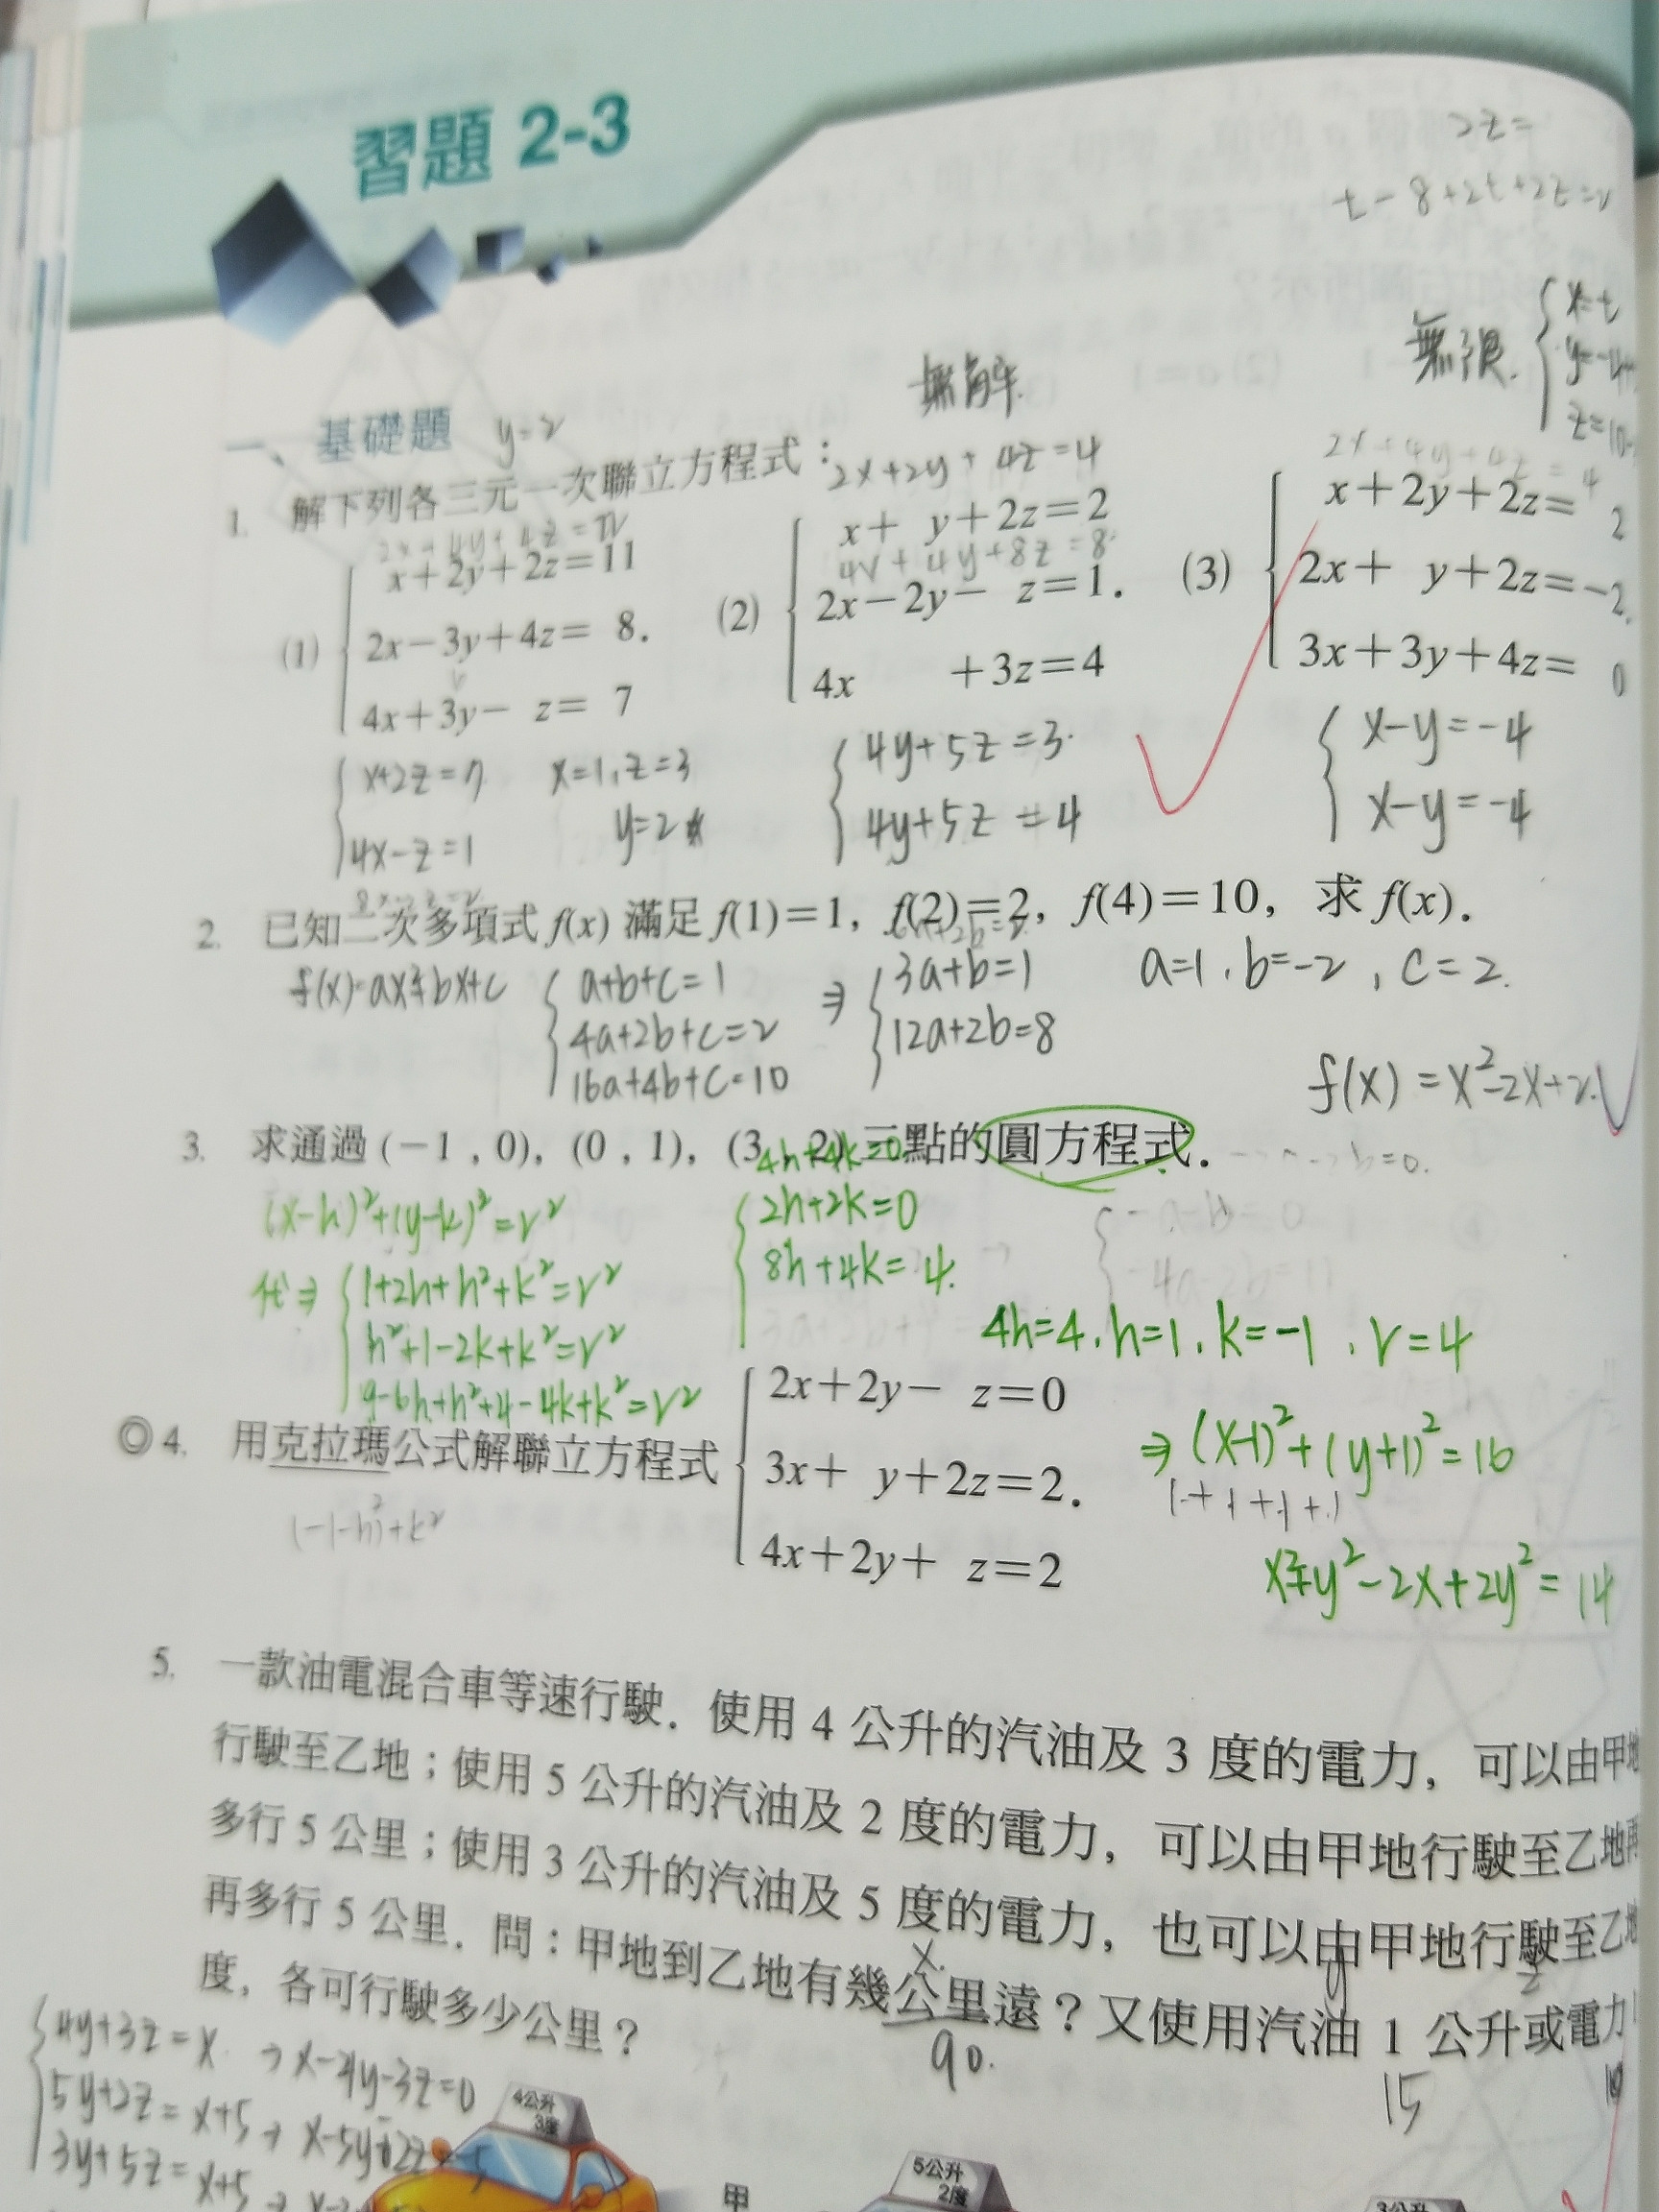 習題 2-3
2z=
無解.
無限.
x=t
一、基礎題 y=2
1. 解下列各三元一次聯立方程式：
2x+2y+4z=4
2x+4y+4z=4
(1)
x+2y+2z=11
2x-3y+4z=8.
4x+3y-z=7
(2)
x+y+2z=2
4x+4y+8z=8
2x-2y-z=1.
4x+3z=4
(3)
x+2y+2z=2
2x+y+2z=-2.
3x+3y+4z=0
x+2z=7 x=1, z=3
4x-z=1 y=2
4y+5z=3
4y+5z=4
x-y=-4
x-y=-4
2. 已知二次多項式 f(x) 滿足 f(1)=1, f(2)=2, f(4)=10, 求 f(x).
f(x)=ax²+bx+c
a+b+c=1
4a+2b+c=2
16a+4b+c=10
⇒
3a+b=1
12a+2b=8
a=1, b=-2, c=2.
f(x)=x²-2x+2.
3. 求通過 (-1, 0), (0, 1), (3, 2) 三點的圓方程式.
4h+4k=0
(x-h)²+(y-k)²=r²
代⇒
1+2h+h²+k²=r²
h²+1-2k+k²=r²
9-6h+h²+4-4k+k²=r²
2h+2k=0
8h+4k=4.
4h=4, h=1, k=-1, r=4
⇒(x-1)²+(y+1)²=16
x²+y²-2x+2y²=14
◎4. 用克拉瑪公式解聯立方程式
2x+2y-z=0
3x+y+2z=2.
4x+2y+z=2
(-1-h)²+k²
5. 一款油電混合車等速行駛. 使用 4 公升的汽油及 3 度的電力, 可以由甲地
行駛至乙地；使用 5 公升的汽油及 2 度的電力, 可以由甲地行駛至乙地再
多行 5 公里；使用 3 公升的汽油及 5 度的電力, 也可以由甲地行駛至乙地
再多行 5 公里. 問：甲地到乙地有幾公里遠？又使用汽油 1 公升或電力
度, 各可行駛多少公里？
x
y
z
90.
15
4y+3z=x → x-4y-3z=0
5y+2z=x+5 → x-5y-2z=-5
3y+5z=x+5
4公升
3度
甲
5公升
2度
3公升